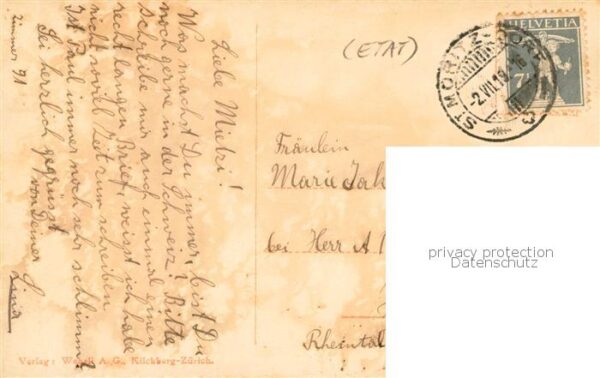 Liebe Mutzi!
Was machst Du immer, bist Du
noch gerne in der Schweiz? Bitte
schreibe mir auch einmal einen
recht langen Brief, weisst ich habe
nicht soviel Zeit zum schreiben
Ist Paul immer noch sehr schlimm?
Sei herzlich gegrüsst
von Deiner
Lina
Zimmer 91
(ETAT)
HELVETIA
7½
ST MORITZ-DORF
-2.VII.19
Fräulein
Marie Jak
bei Herr A
Rheintal
privacy protection
Datenschutz
Verlag: A. G., Kilchberg-Zürich.